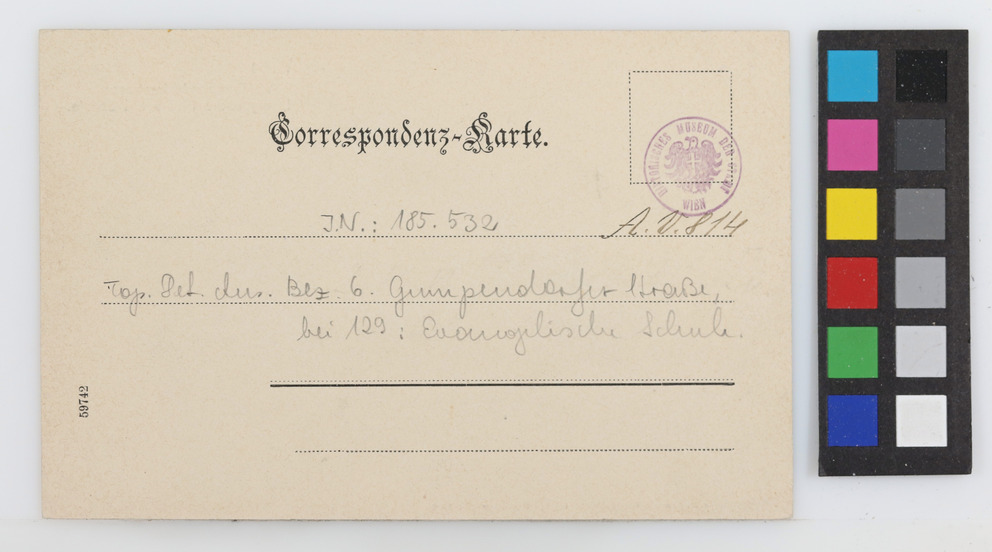 Correspondenz-Karte.
STÄDTISCHES MUSEUM DER STADT WIEN
J.N.: 185.532
A.V. 814
Top. Det. Aus. Bez. 6. Gumpendorfer Straße,
bei 129: Evangelische Schule.
59742